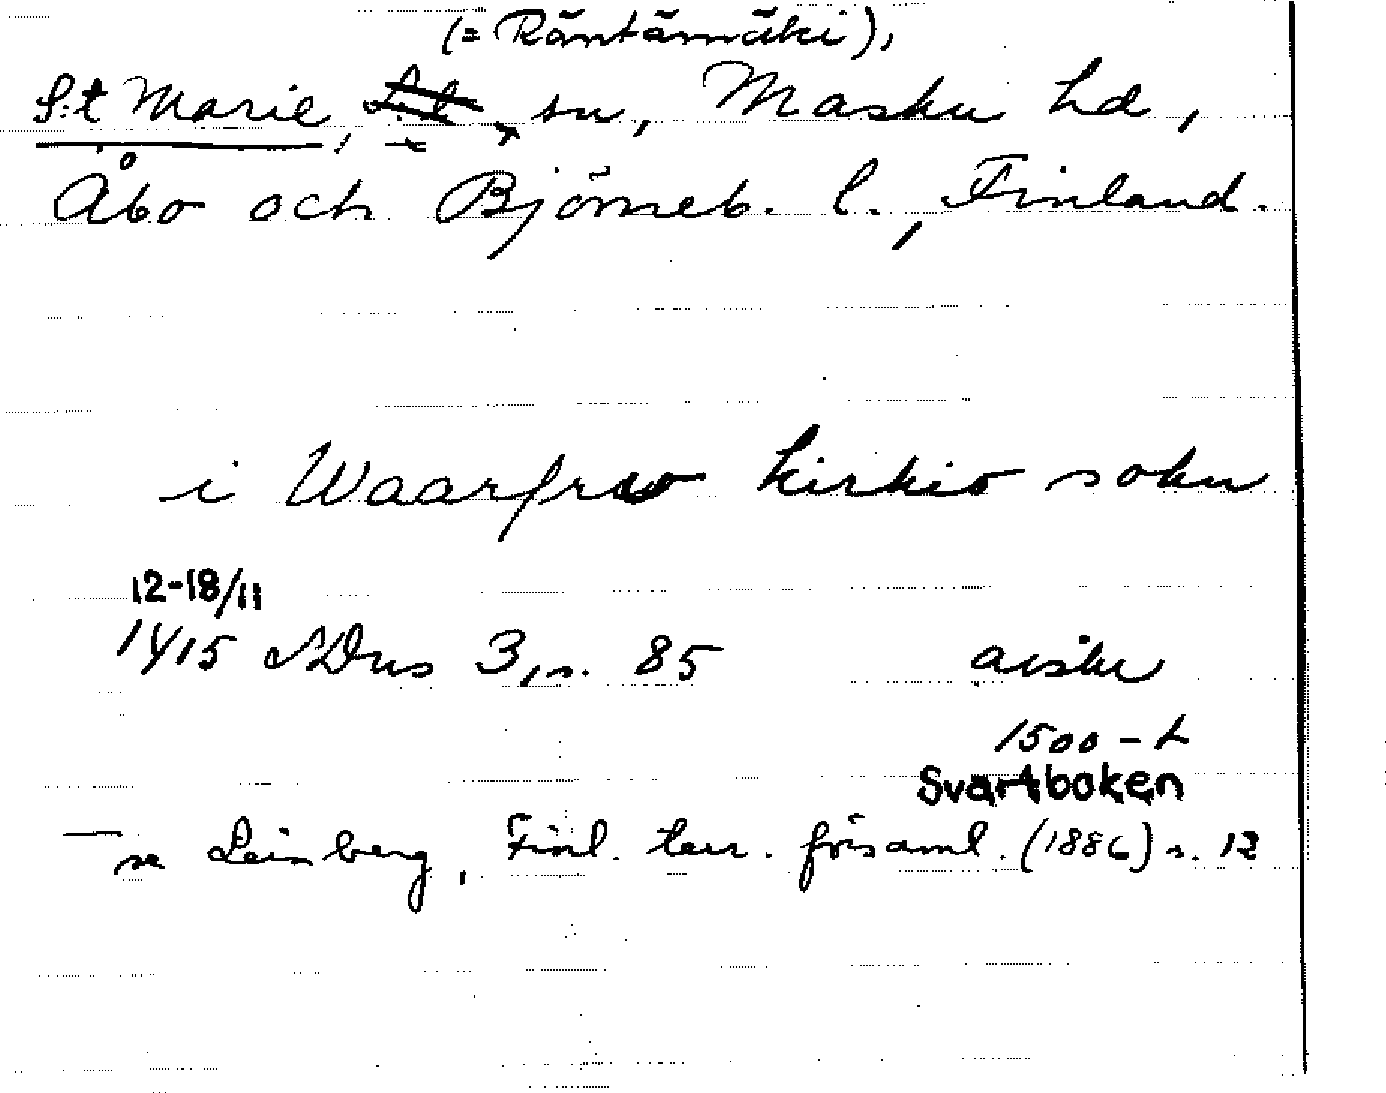 (= Räntämäki),
S:t Marie, sn, Masku hd,
Åbo och Björneb. l., Finland.
i Waarfrw kirkio sokn
12-18/11
1415 SDns 3, s. 85 avskr
1500-t
Svartboken
— se Leinberg, Finl. terr. församl. (1886) s. 12